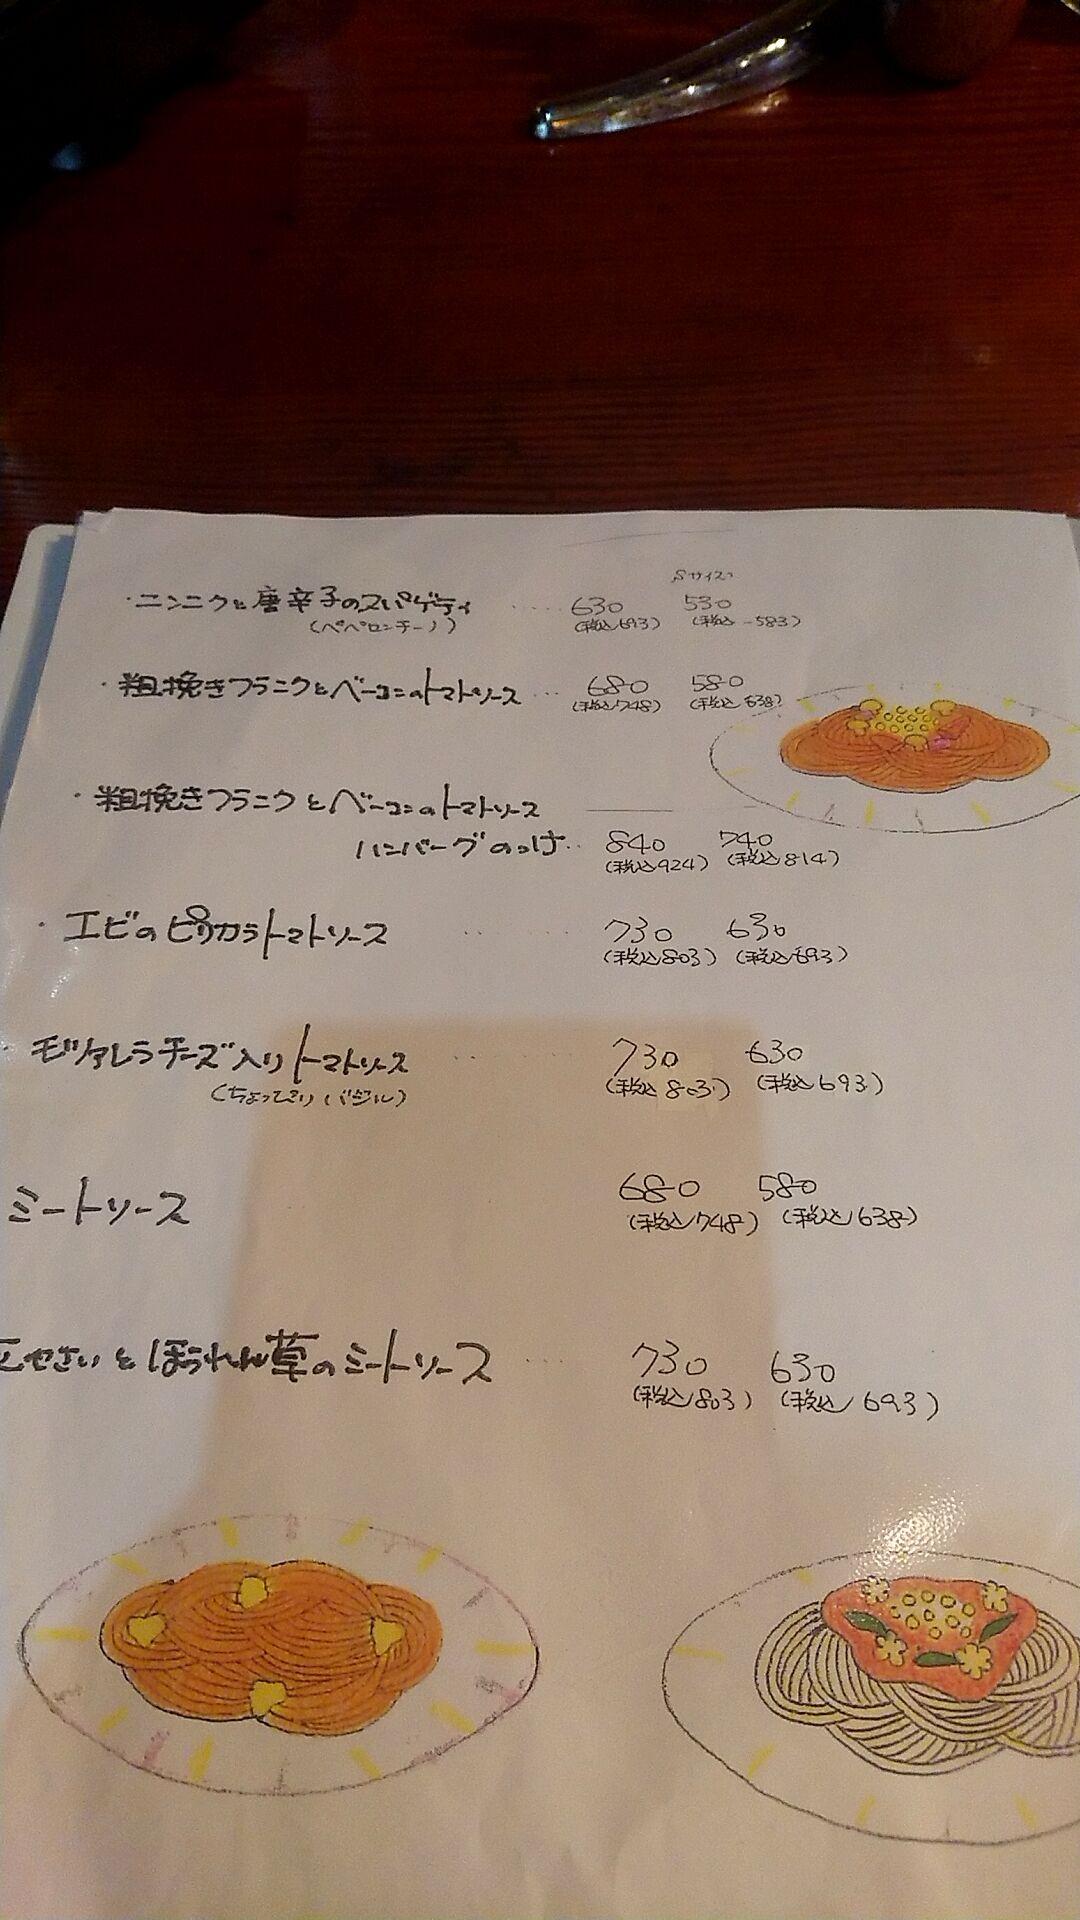 Sサイズ
・ニンニクと唐辛子のスパゲティ ····· 630 530
(ペペロンチーノ) (税込693) (税込 583)
・粗挽きフランクとベーコンのトマトソース ··· 680 580
(税込748) (税込638)
・粗挽きフランクとベーコンのトマトソース
ハンバーグのっけ·· 840 740
(税込924) (税込814)
・エビのピリカラトマトソース ··· 730 630
(税込803) (税込693)
・モッツァレラチーズ入りトマトソース ··· 730 630
(ちょっぴりバジル) (税込803) (税込693)
ミートソース 680 580
(税込748) (税込638)
やさいとほうれん草のミートソース ··· 730 630
(税込803) (税込693)